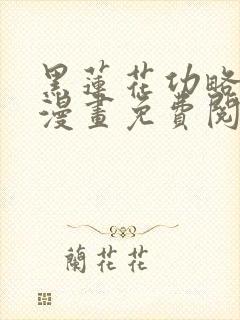 黑蓮花功略
漫畫免費閱
蘭花花